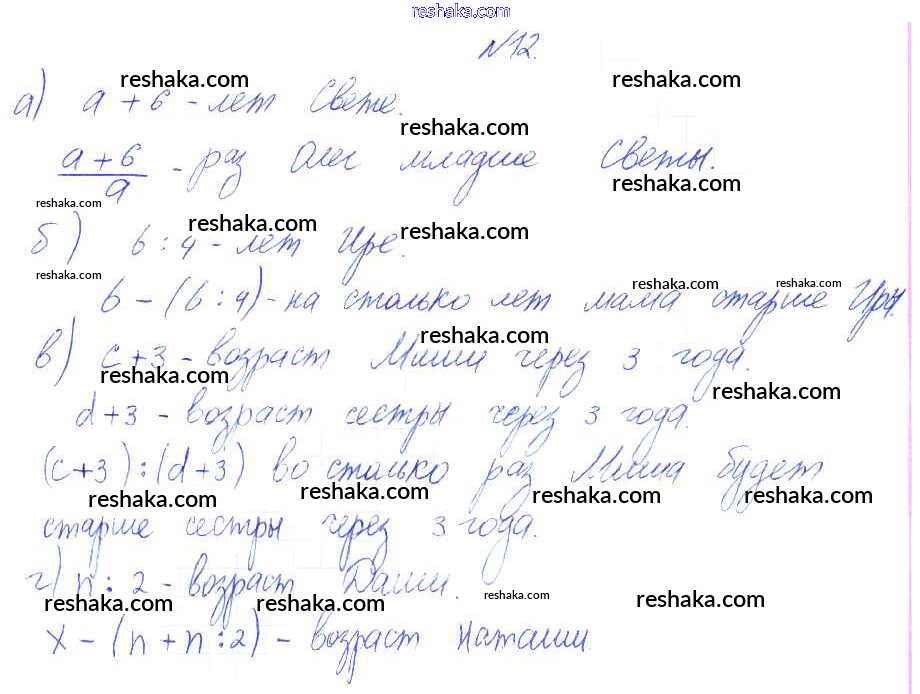 reshaka.com
N12.
reshaka.com reshaka.com
а) a + 6 - лет Свете.
reshaka.com
(a + 6)/a - раз Олег младше Светы.
reshaka.com
reshaka.com
reshaka.com reshaka.com
б) b : 4 - лет Ире.
reshaka.com reshaka.com reshaka.com
b - (b : 4) - на столько лет мама старше Иры.
reshaka.com
в) c + 3 - возраст Миши через 3 года.
reshaka.com reshaka.com
d + 3 - возраст сестры через 3 года.
(c + 3) : (d + 3) во столько раз Миша будет
reshaka.com reshaka.com reshaka.com reshaka.com
старше сестры через 3 года.
г) n : 2 - возраст Даши.
reshaka.com reshaka.com reshaka.com reshaka.com
x - (n + n : 2) - возраст Наташи.